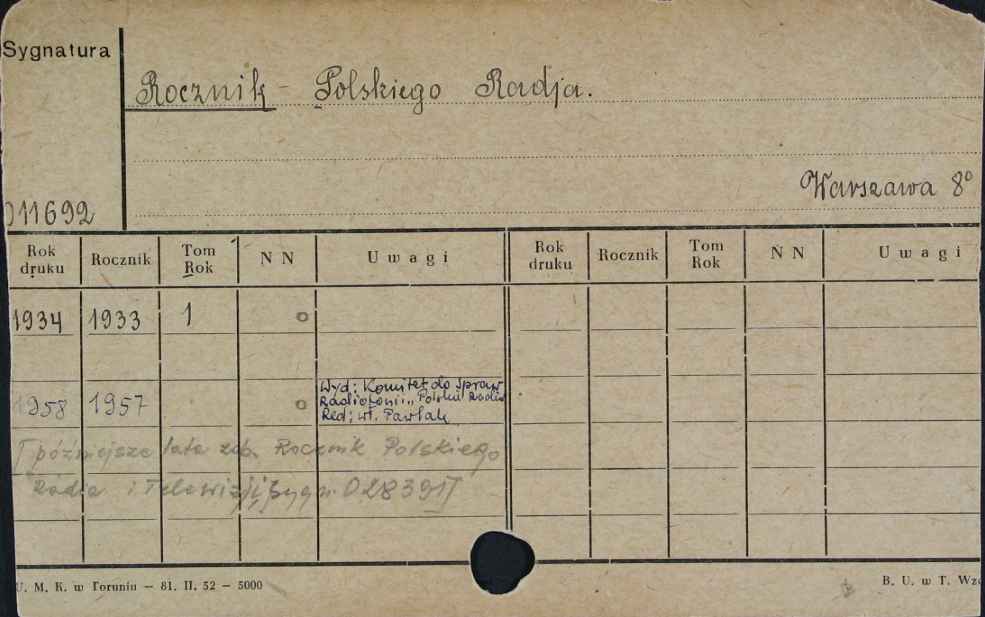 Sygnatura
Rocznik - Polskiego Radja.
Warszawa 8°
011692
Rok druku Rocznik Tom Rok N N Uwagi Rok druku Rocznik Tom Rok N N Uwagi
1934 1933 1
Wyd: Komitet do Spraw
1958 1957 Radiofonii „Polskie Radio
Red: Wł. Pawlak
[późniejsze lata zob. Rocznik Polskiego
Radia i Telewizji, sygn. 028391]
U. M. K. w Toruniu — 81. II. 52 — 5000
B. U. w T. Wzó